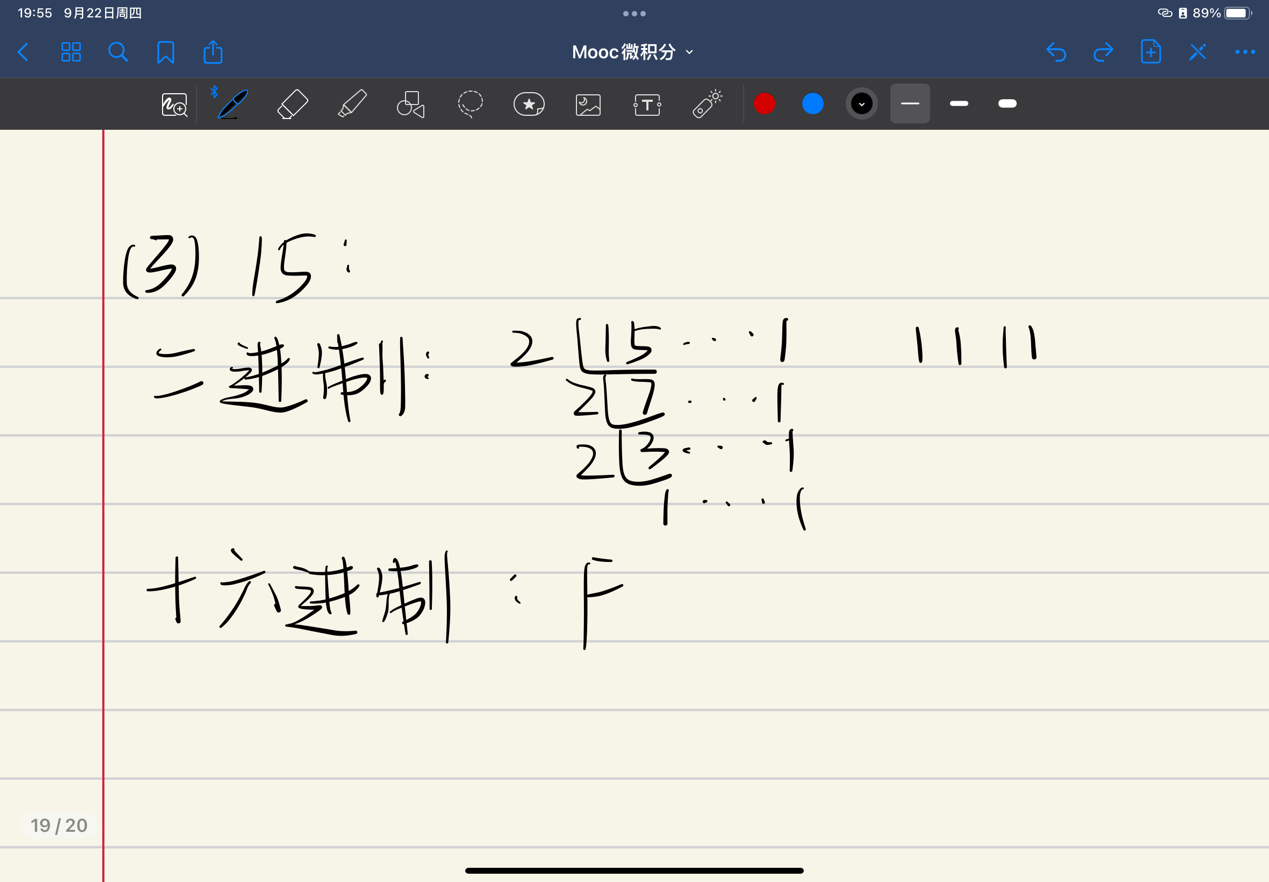 19:55 9月22日周四
89%
Mooc微积分
(3) 15:
二进制: 2 15 ··· 1 1111
2 7 ··· 1
2 3 ··· 1
1 ··· 1
十六进制: F
19 / 20